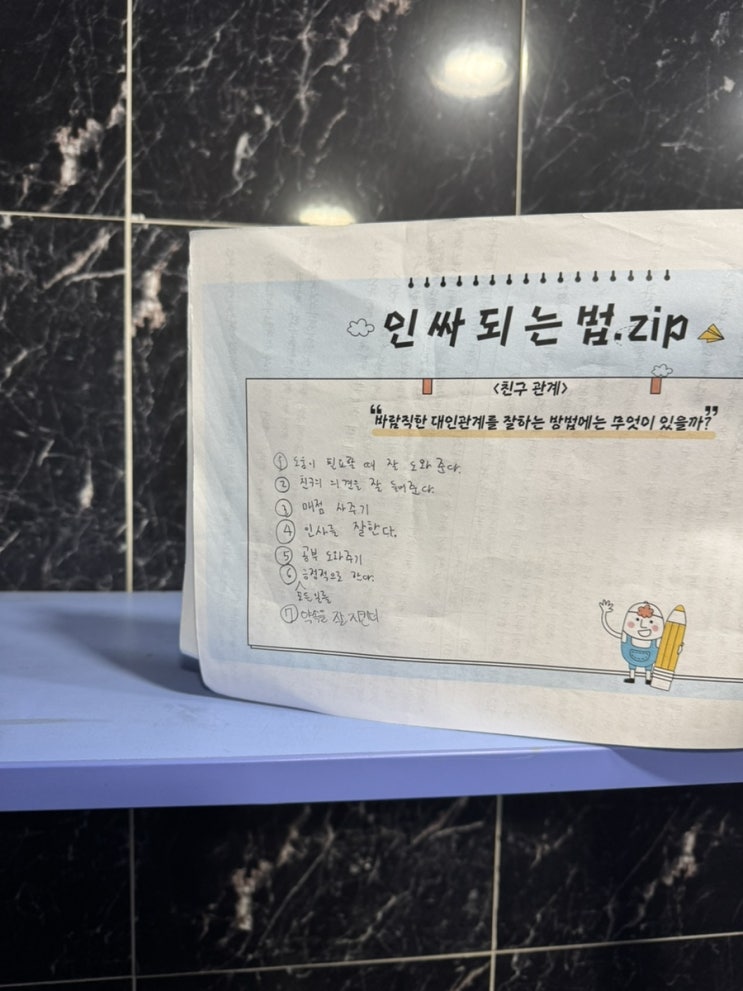 인싸되는법.zip
<친구 관계>
“바람직한 대인관계를 잘하는 방법에는 무엇이 있을까?”
① 도움이 필요할 때 잘 도와준다.
② 친구의 의견을 잘 들어준다.
③ 매점 사주기
④ 인사를 잘한다.
⑤ 공부 도와주기
⑥ 긍정적으로 한다.
모든 일을
⑦ 약속을 잘 지킨다